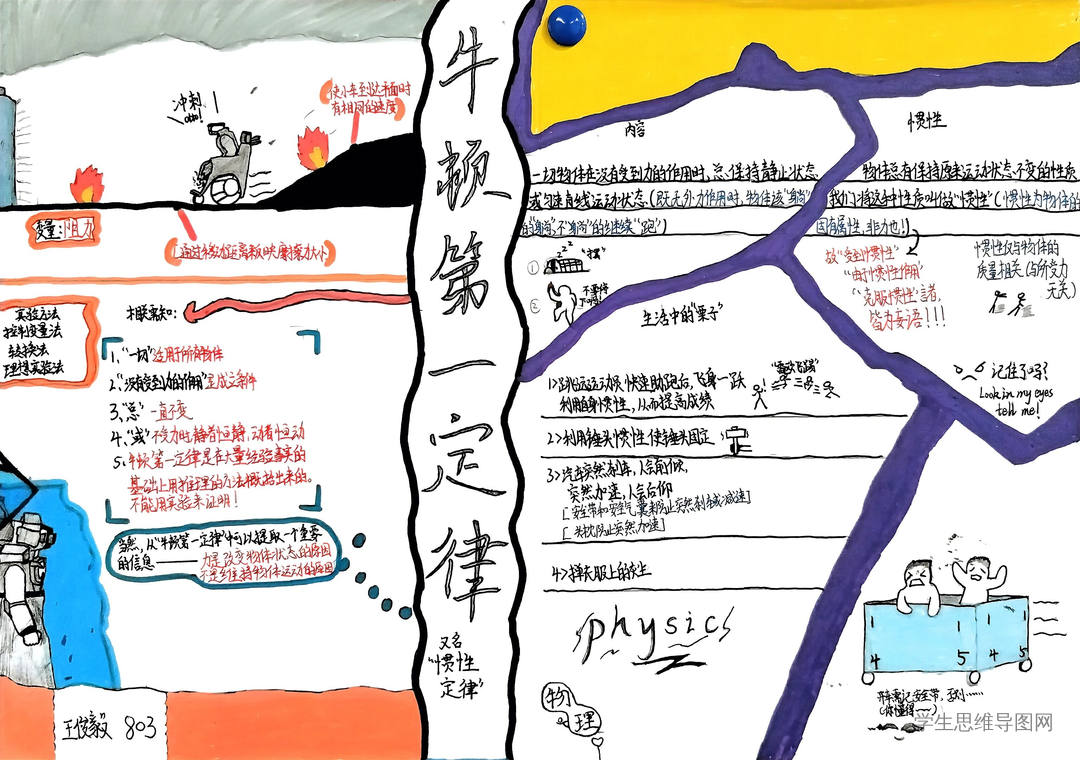 牛顿第一定律
又名
"惯性
定律"
冲刺
otto!
使小车到达平面时
有相同的速度
变量:阻力
通过移动距离反映摩擦力大小
实验方法
控制变量法
转换法
理想实验法
相联需知:
1、"一切"适用于所有物体
2."没有受到力的作用"是成立条件
3、"总"一直不变
4、"或"不受力时,静者恒静,动者恒动
5、牛顿第一定律是在大量经验事实的
基础上用推理的方法概括出来的。
不能用实验来证明!
当然,从"牛顿第一定律"中可以提取一个重要
的信息——力是改变物体状态的原因
不是维持物体运动的原因
王俊毅 803
内容
一切物体在没有受到力的作用时,总保持静止状态
或匀速直线运动状态(既无外力作用时,物体该"躺"
的"躺",不"躺"的继续"跑")
①
zzz
②
惯性
物体总有保持原来运动状态不变的性质
我们将这种性质叫做"惯性"(惯性为物体的
固有属性,非力也!)
故"受到惯性"
"由于惯性作用"
"克服惯性"言者,
皆为妄语!!!
惯性仅与物体的
质量相关(与所受力
无关)
记住了吗?
Look in my eyes
tell me!
生活中的"栗子"
1>跳远运动员快速助跑后,飞身一跃
利用自身惯性,从而提高成绩
2>利用锤头惯性使锤头固定
3>汽车突然刹车,人会前倾,
突然加速,人会后仰
[安全带和安全气囊来防止突然刹车或减速]
[头枕防止突然加速]
4>掸衣服上的灰尘
physics
物理
4 5 4 5
开车需记安全带,否则……
(你懂得~~)
学生思维导图网